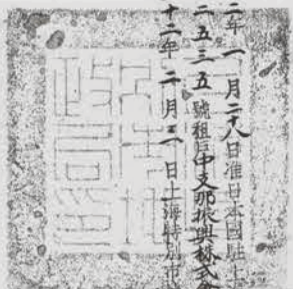 二年一月二八日准日本國駐上
二五三五號租戶中支那振興株式會
十二年二月 日上海特別市
政局印